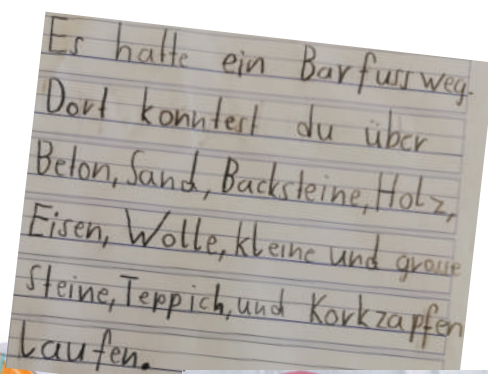 Es hatte ein Barfussweg.
Dort konntest du über
Beton, Sand, Backsteine, Holz,
Eisen, Wolle, kleine und grosse
Steine, Teppich, und Korkzapfen
Laufen.